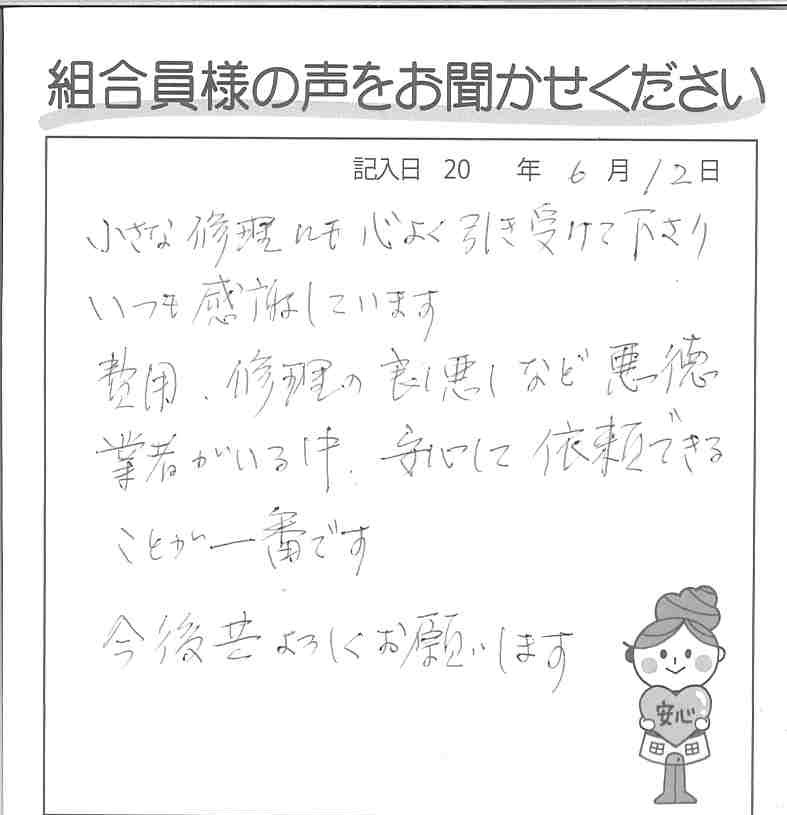 組合員様の声をお聞かせください
記入日 20 年 6 月 12 日
小さな修理にも心よく引き受けて下さり
いつも感謝しています
費用、修理の良し悪しなど悪徳
業者がいる中、安心して依頼できる
ことが一番です
今後共よろしくお願いします
安心